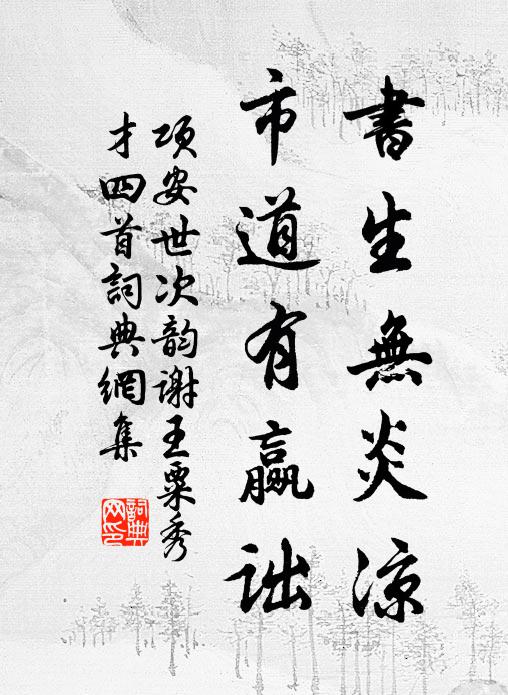 書生無炎凉
市道有贏詘
项安世次韵谢王粟秀
才四首詞典網集
詞典
网印